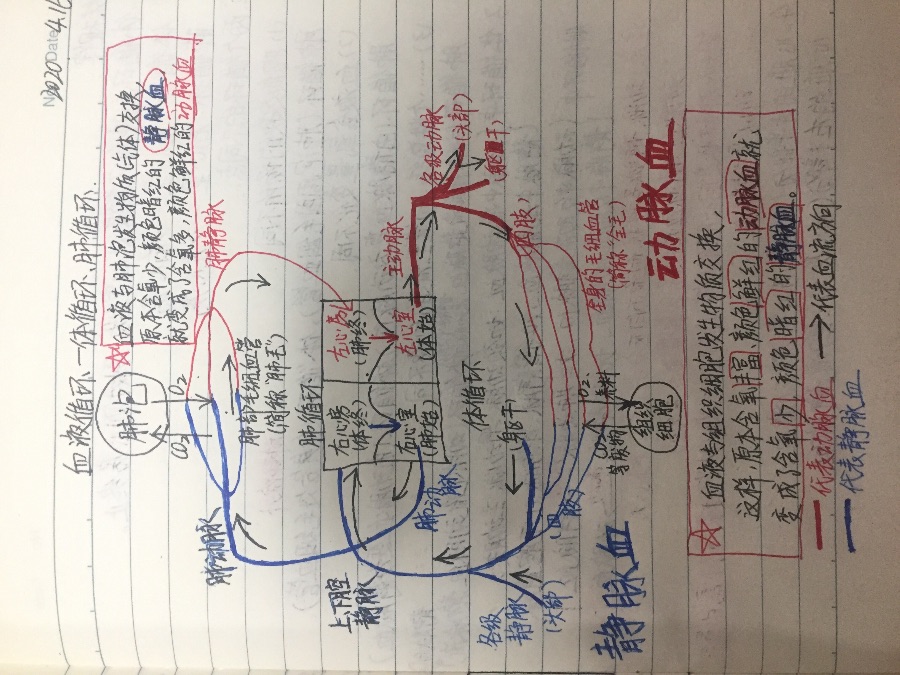 No
Date 2020.4.16
血液循环—体循环、肺循环.
血液与肺泡发生物质(气体)交换,
原本含氧少,颜色暗红的静脉血
就变成了含氧多,颜色鲜红的动脉血
肺泡
CO₂ O₂
肺动脉
肺静脉
肺部毛细血管
(简称"肺毛")
肺循环
右心房
(体终)
左心房
(肺终)
右心室
(肺始)
左心室
(体始)
上、下腔
静脉
肺动
脉
主动脉
各级动脉
(头部)
(躯干)
(四肢)
体循环
各级
静脉
(头部)
(躯干)
(四肢)
全身的毛细血管
(简称"全毛")
CO₂
等废物
O₂
养料
组织
细胞
静脉血
动脉血
血液与组织细胞发生物质交换,
这样,原本含氧丰富,颜色鲜红的动脉血就
变成了含氧少,颜色暗红的静脉血。
—代表动脉血
—代表静脉血
→代表血流方向.